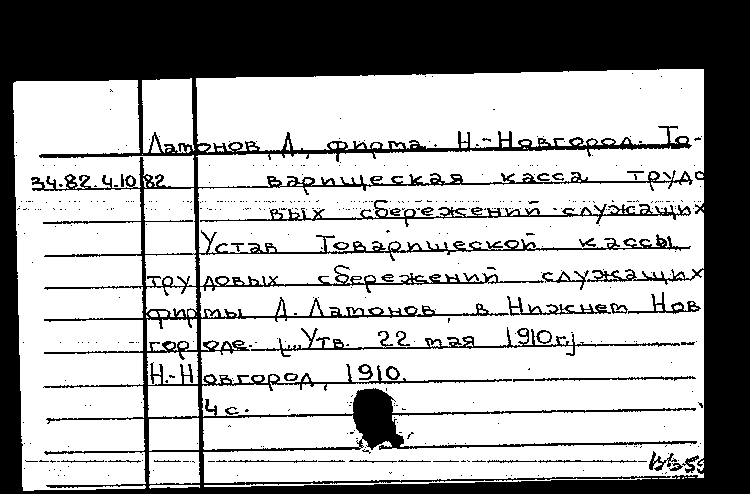 Латонов, Д., фирма. Н.-Новгород. То-
34.82.4.10 82. варищеская касса трудо
вых сбережений служащих
Устав Товарищеской кассы
трудовых сбережений служащих
фирмы Д. Латонов, в Нижнем Нов
городе. [...Утв. 22 мая 1910 г.]
Н.-Новгород, 1910.
4 с.